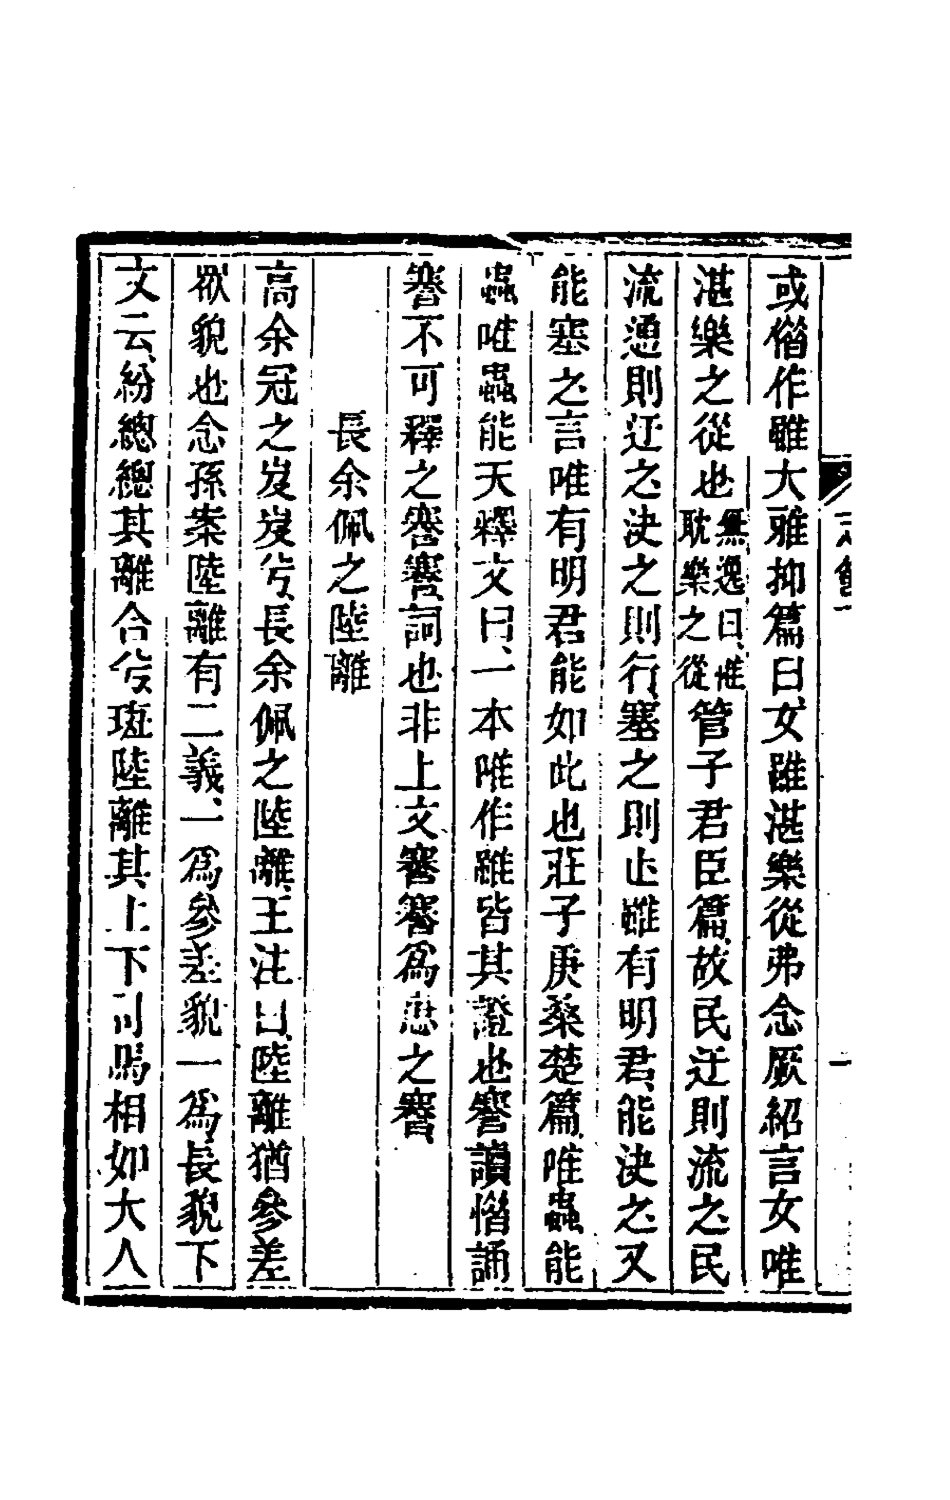 或借作雖大雅抑篇曰女雖湛樂從弗念厥紹言女唯
湛樂之從也無逸曰惟耽樂之從管子君臣篇故民迂則流之民
流通則迂之決之則行塞之則止雖有明君能決之又
能塞之言唯有明君能如此也莊子庚桑楚篇唯蟲能
蟲唯蟲能天釋文曰一本唯作雖皆其證也謇讀譖誦
謇不可釋之謇謇詞也非上文謇謇爲忠之謇
長余佩之陸離
高余冠之岌岌兮長余佩之陸離王注曰陸離猶參差
衆貌也念孫案陸離有二義一爲參差貌一爲長貌下
文云紛總總其離合兮斑陸離其上下司馬相如大人